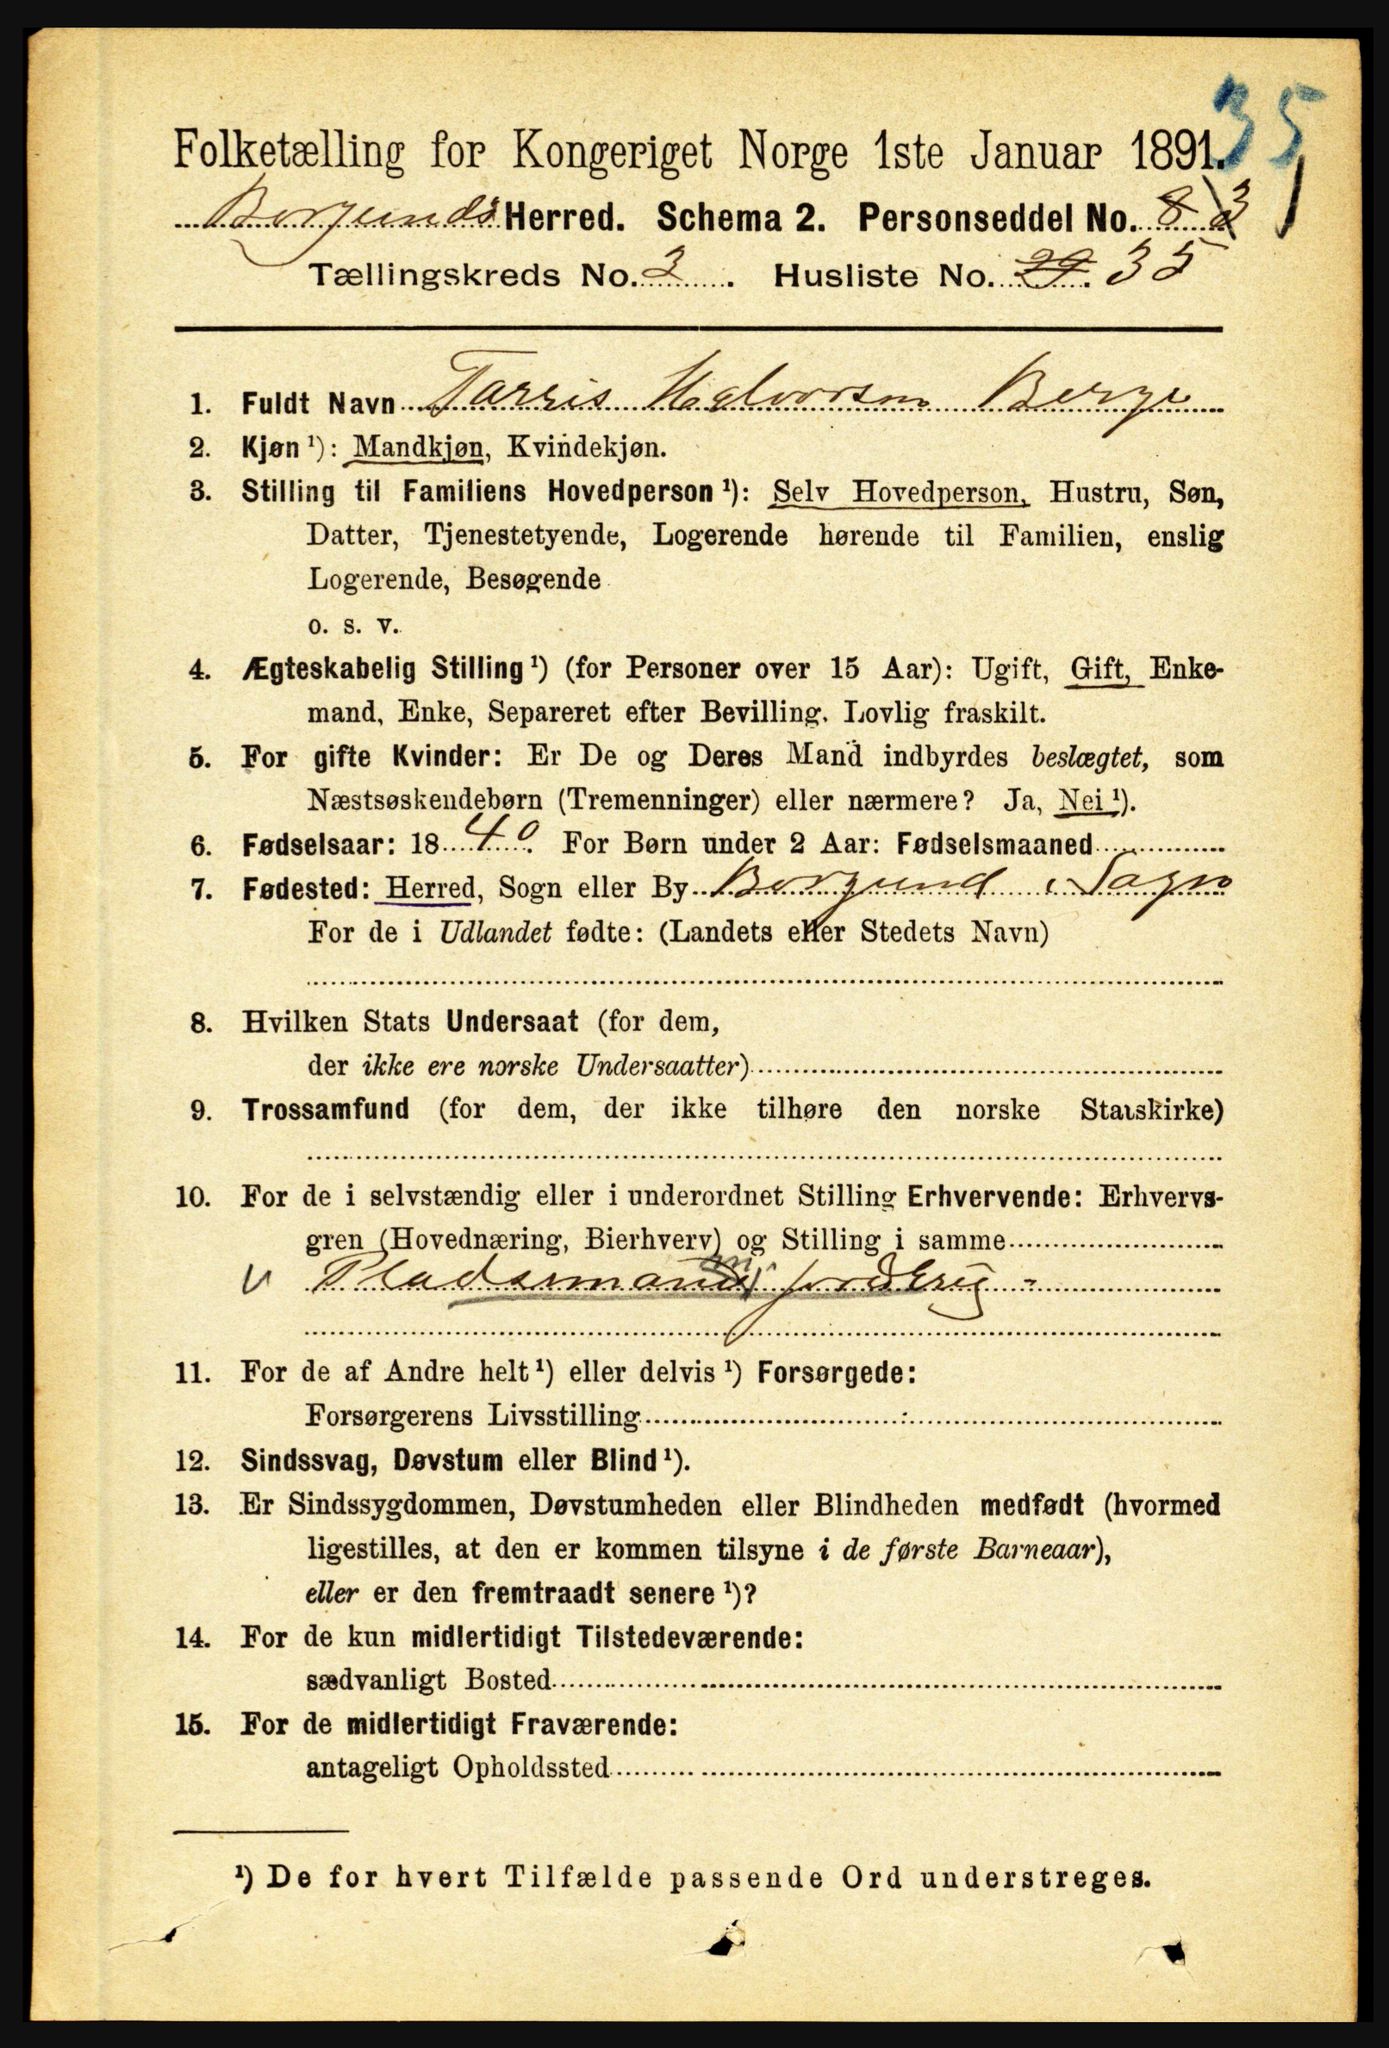 35
Folketælling for Kongeriget Norge 1ste Januar 1891.
Borgunds Herred. Schema 2. Personseddel No. 8 3
Tællingskreds No. 3. Husliste No. 29. 35
1. Fuldt Navn Tarris Halvorsen Berge
2. Kjøn ¹): Mandkjøn, Kvindekjøn.
3. Stilling til Familiens Hovedperson ¹): Selv Hovedperson, Hustru, Søn,
Datter, Tjenestetyende, Logerende hørende til Familien, enslig
Logerende, Besøgende
o. s. v.
4. Ægteskabelig Stilling ¹) (for Personer over 15 Aar): Ugift, Gift, Enke-
mand, Enke, Separeret efter Bevilling. Lovlig fraskilt.
5. For gifte Kvinder: Er De og Deres Mand indbyrdes beslægtet, som
Næstsøskendebørn (Tremenninger) eller nærmere? Ja, Nei ¹).
6. Fødselsaar: 1840. For Børn under 2 Aar: Fødselsmaaned
7. Fødested: Herred, Sogn eller By Borgund i Sogn
For de i Udlandet fødte: (Landets eller Stedets Navn)
8. Hvilken Stats Undersaat (for dem,
der ikke ere norske Undersaatter)
9. Trossamfund (for dem, der ikke tilhøre den norske Statskirke)
10. For de i selvstændig eller i underordnet Stilling Erhvervende: Erhvervs-
gren (Hovednæring, Bierhverv) og Stilling i samme
Pladsmand m jordbrug
11. For de af Andre helt ¹) eller delvis ¹) Forsørgede:
Forsørgerens Livsstilling
12. Sindssvag, Døvstum eller Blind ¹).
13. Er Sindssygdommen, Døvstumheden eller Blindheden medfødt (hvormed
ligestilles, at den er kommen tilsyne i de første Barneaar),
eller er den fremtraadt senere ¹)?
14. For de kun midlertidigt Tilstedeværende:
sædvanligt Bosted
15. For de midlertidigt Fraværende:
antageligt Opholdssted
¹) De for hvert Tilfælde passende Ord understreges.